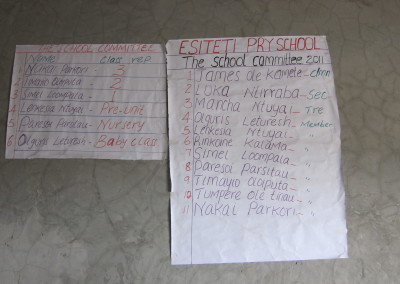 THE SCHOOL COMMITTEE
Name Class rep
1 Nakai Parkori - 3
2 - 2
3 Simel Loompala - 1
4 Lekesia Ntuyai - Pre-unit
5 - Nursery
6 Olguris Leturesh - Baby class
ESITETI PRY SCHOOL
The school committee 2011
1 James ole Kamete - chmn
2 Luka Ntirraba - Sec
3 Marcha Ntuyai - Tre
4 Olguris Leturesh - Member
5 Lelkesia Ntuyai - "
6 Rinkaine Karama - "
7 Simel Loompala - "
8 Daresa Parsitau - "
9 Timayio olaputa - "
10 Tumpere Ole - "
11 Nakai Parkori - "